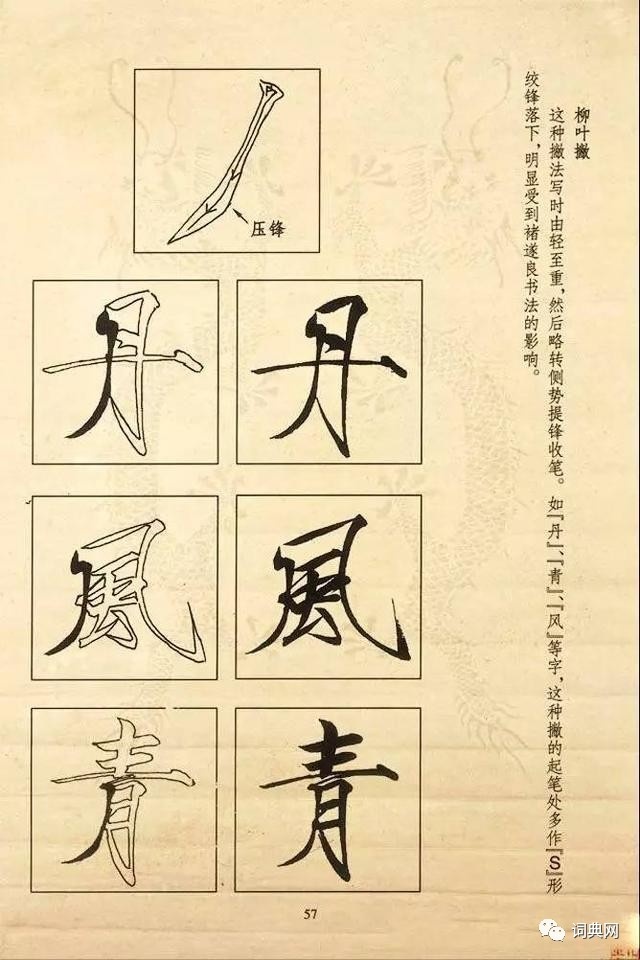 柳叶撇
这种撇法写时由轻至重，然后略转侧势提锋收笔。如『丹』、『青』、『风』等字，这种撇的起笔处多作『S』形
绞锋落下，明显受到褚遂良书法的影响。
压锋
丹 丹
風 風
青 青
57
词典网